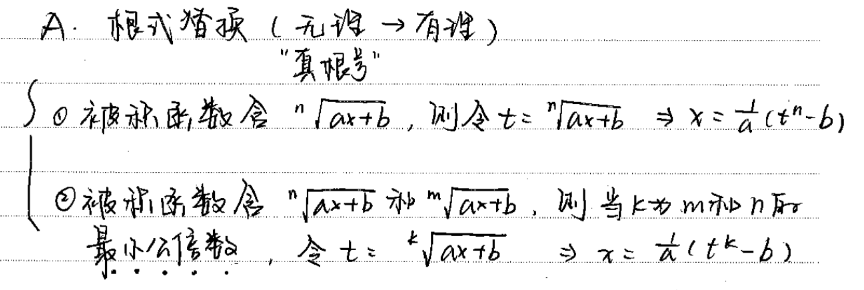 A. 根式替换（无理→有理）
"真根号"
① 被积函数含 ⁿ√(ax+b)，则令 t = ⁿ√(ax+b) ⇒ x = 1/a (tⁿ-b)
② 被积函数含 ⁿ√(ax+b) 和 ᵐ√(ax+b)，则当k为m和n的
最小公倍数，令 t = ᵏ√(ax+b) ⇒ x = 1/a (tᵏ-b)